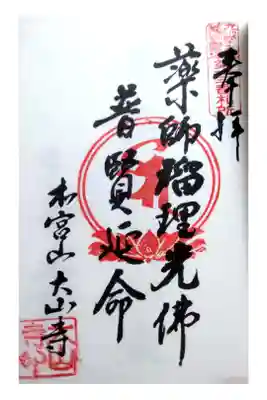 奉拝
薬師瑠理光佛
普賢延命
本宮山 大山寺